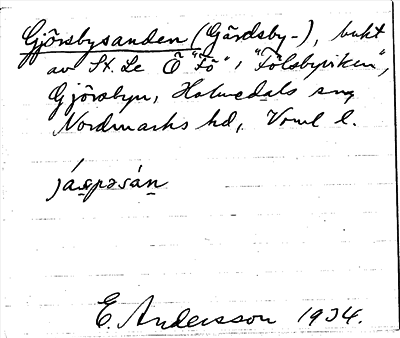 Gjörsbysanden (Gärdsby-), bukt
av St. Le Ö "Fö", "Fölsbyviken",
Gjörsbyn, Holmedals sn,
Nordmarks hd, Vrml l.
E. Andersson 1934.